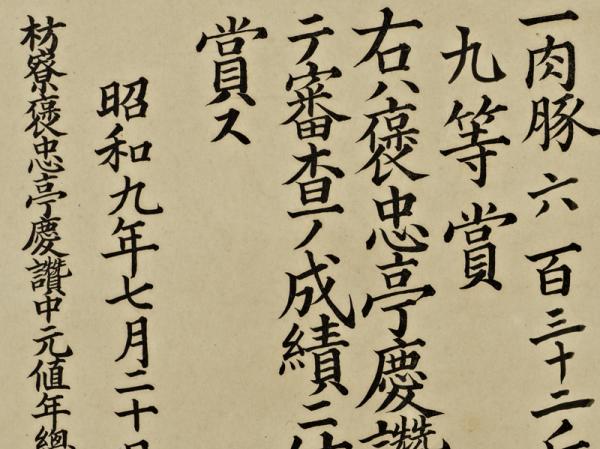 一肉豚六百三十二斤
九等賞
右ハ褒忠亭慶讃
テ審査ノ成績ニ依
賞ス
昭和九年七月二十日
枋寮褒忠亭慶讃中元値年總